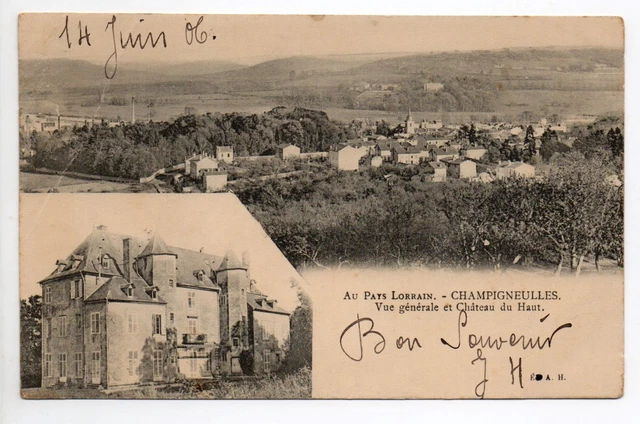 14 Juin 06.
Au Pays Lorrain. - CHAMPIGNEULLES.
Vue générale et Château du Haut.
Bon Souvenir
J H
A. H.